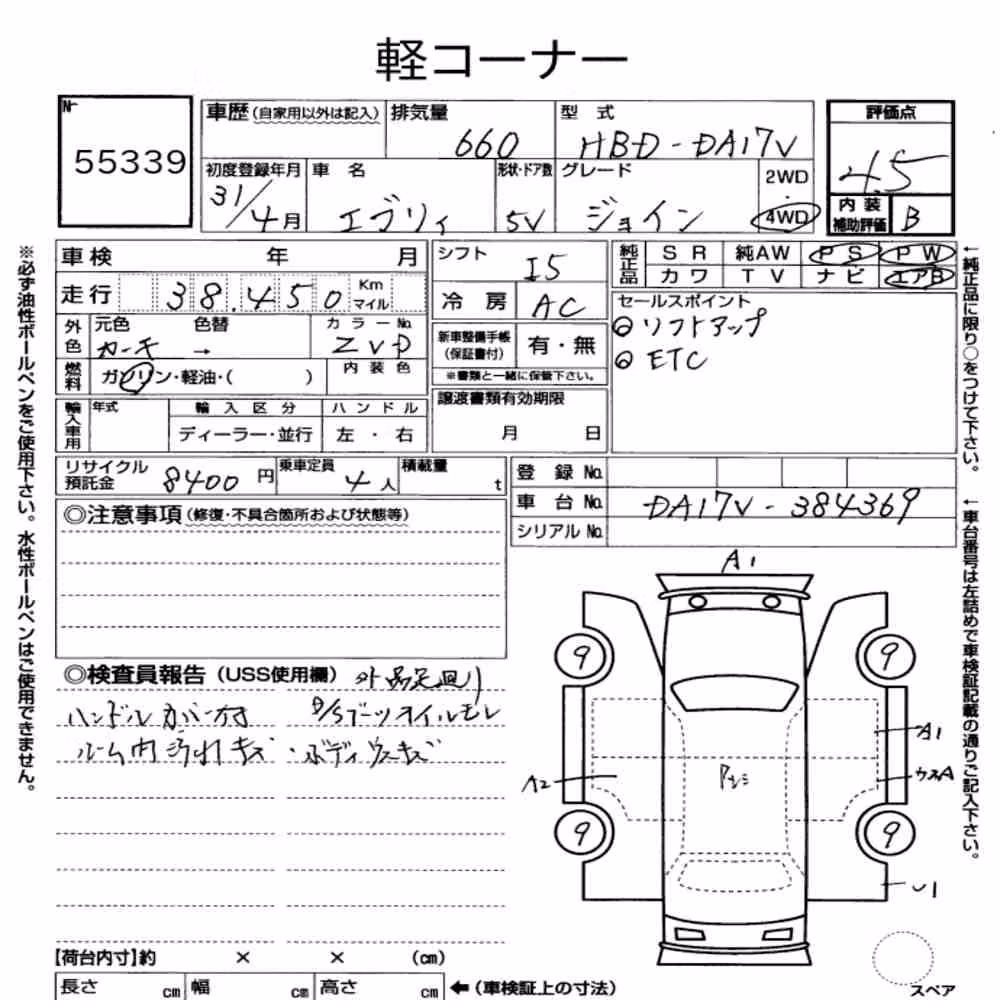 軽コーナー
No.
55339
車歴 (自家用以外は記入)
排気量
660
型式
HBD-DA17V
評価点
4.5
初度登録年月
31/4月
車名
エブリィ
形状・ドア数
5V
グレード
ジョイン
2WD
4WD
内装
補助評価
B
車検 年 月
走行 38.450 Km マイル
シフト
I5
冷房 AC
純正品
SR 純AW PS PW
カワ TV ナビ エアB
外色
元色 色替
カーキ →
カラーNo.
ZVD
新車整備手帳
(保証書付)
有・無
※書類と一緒に保管下さい。
セールスポイント
◎リフトアップ
◎ETC
燃料
ガソリン・軽油・( )
内装色
輸入車用
年式
輸入区分
ディーラー・並行
ハンドル
左・右
譲渡書類有効期限
月 日
リサイクル
預託金
8400円
乗車定員
4人
積載量
t
登録No.
車台No. DA17V-384369
シリアルNo.
◎注意事項(修復・不具合箇所および状態等)
◎検査員報告 (USS使用欄) 外品足回り
ハンドルカバー付 D/Sブーツオイルモレ
ルーム内汚れキズ・ボディウスキズ
A1
9
9
A1
ウスA
A2
9
9
U1
【荷台内寸】約 × × (cm)
長さ cm 幅 cm 高さ cm ←(車検証上の寸法)
スペア
※必ず油性ボールペンをご使用下さい。水性ボールペンはご使用できません。
←純正品に限り○をつけて下さい。
←車台番号は左詰めで車検証記載の通りご記入下さい。